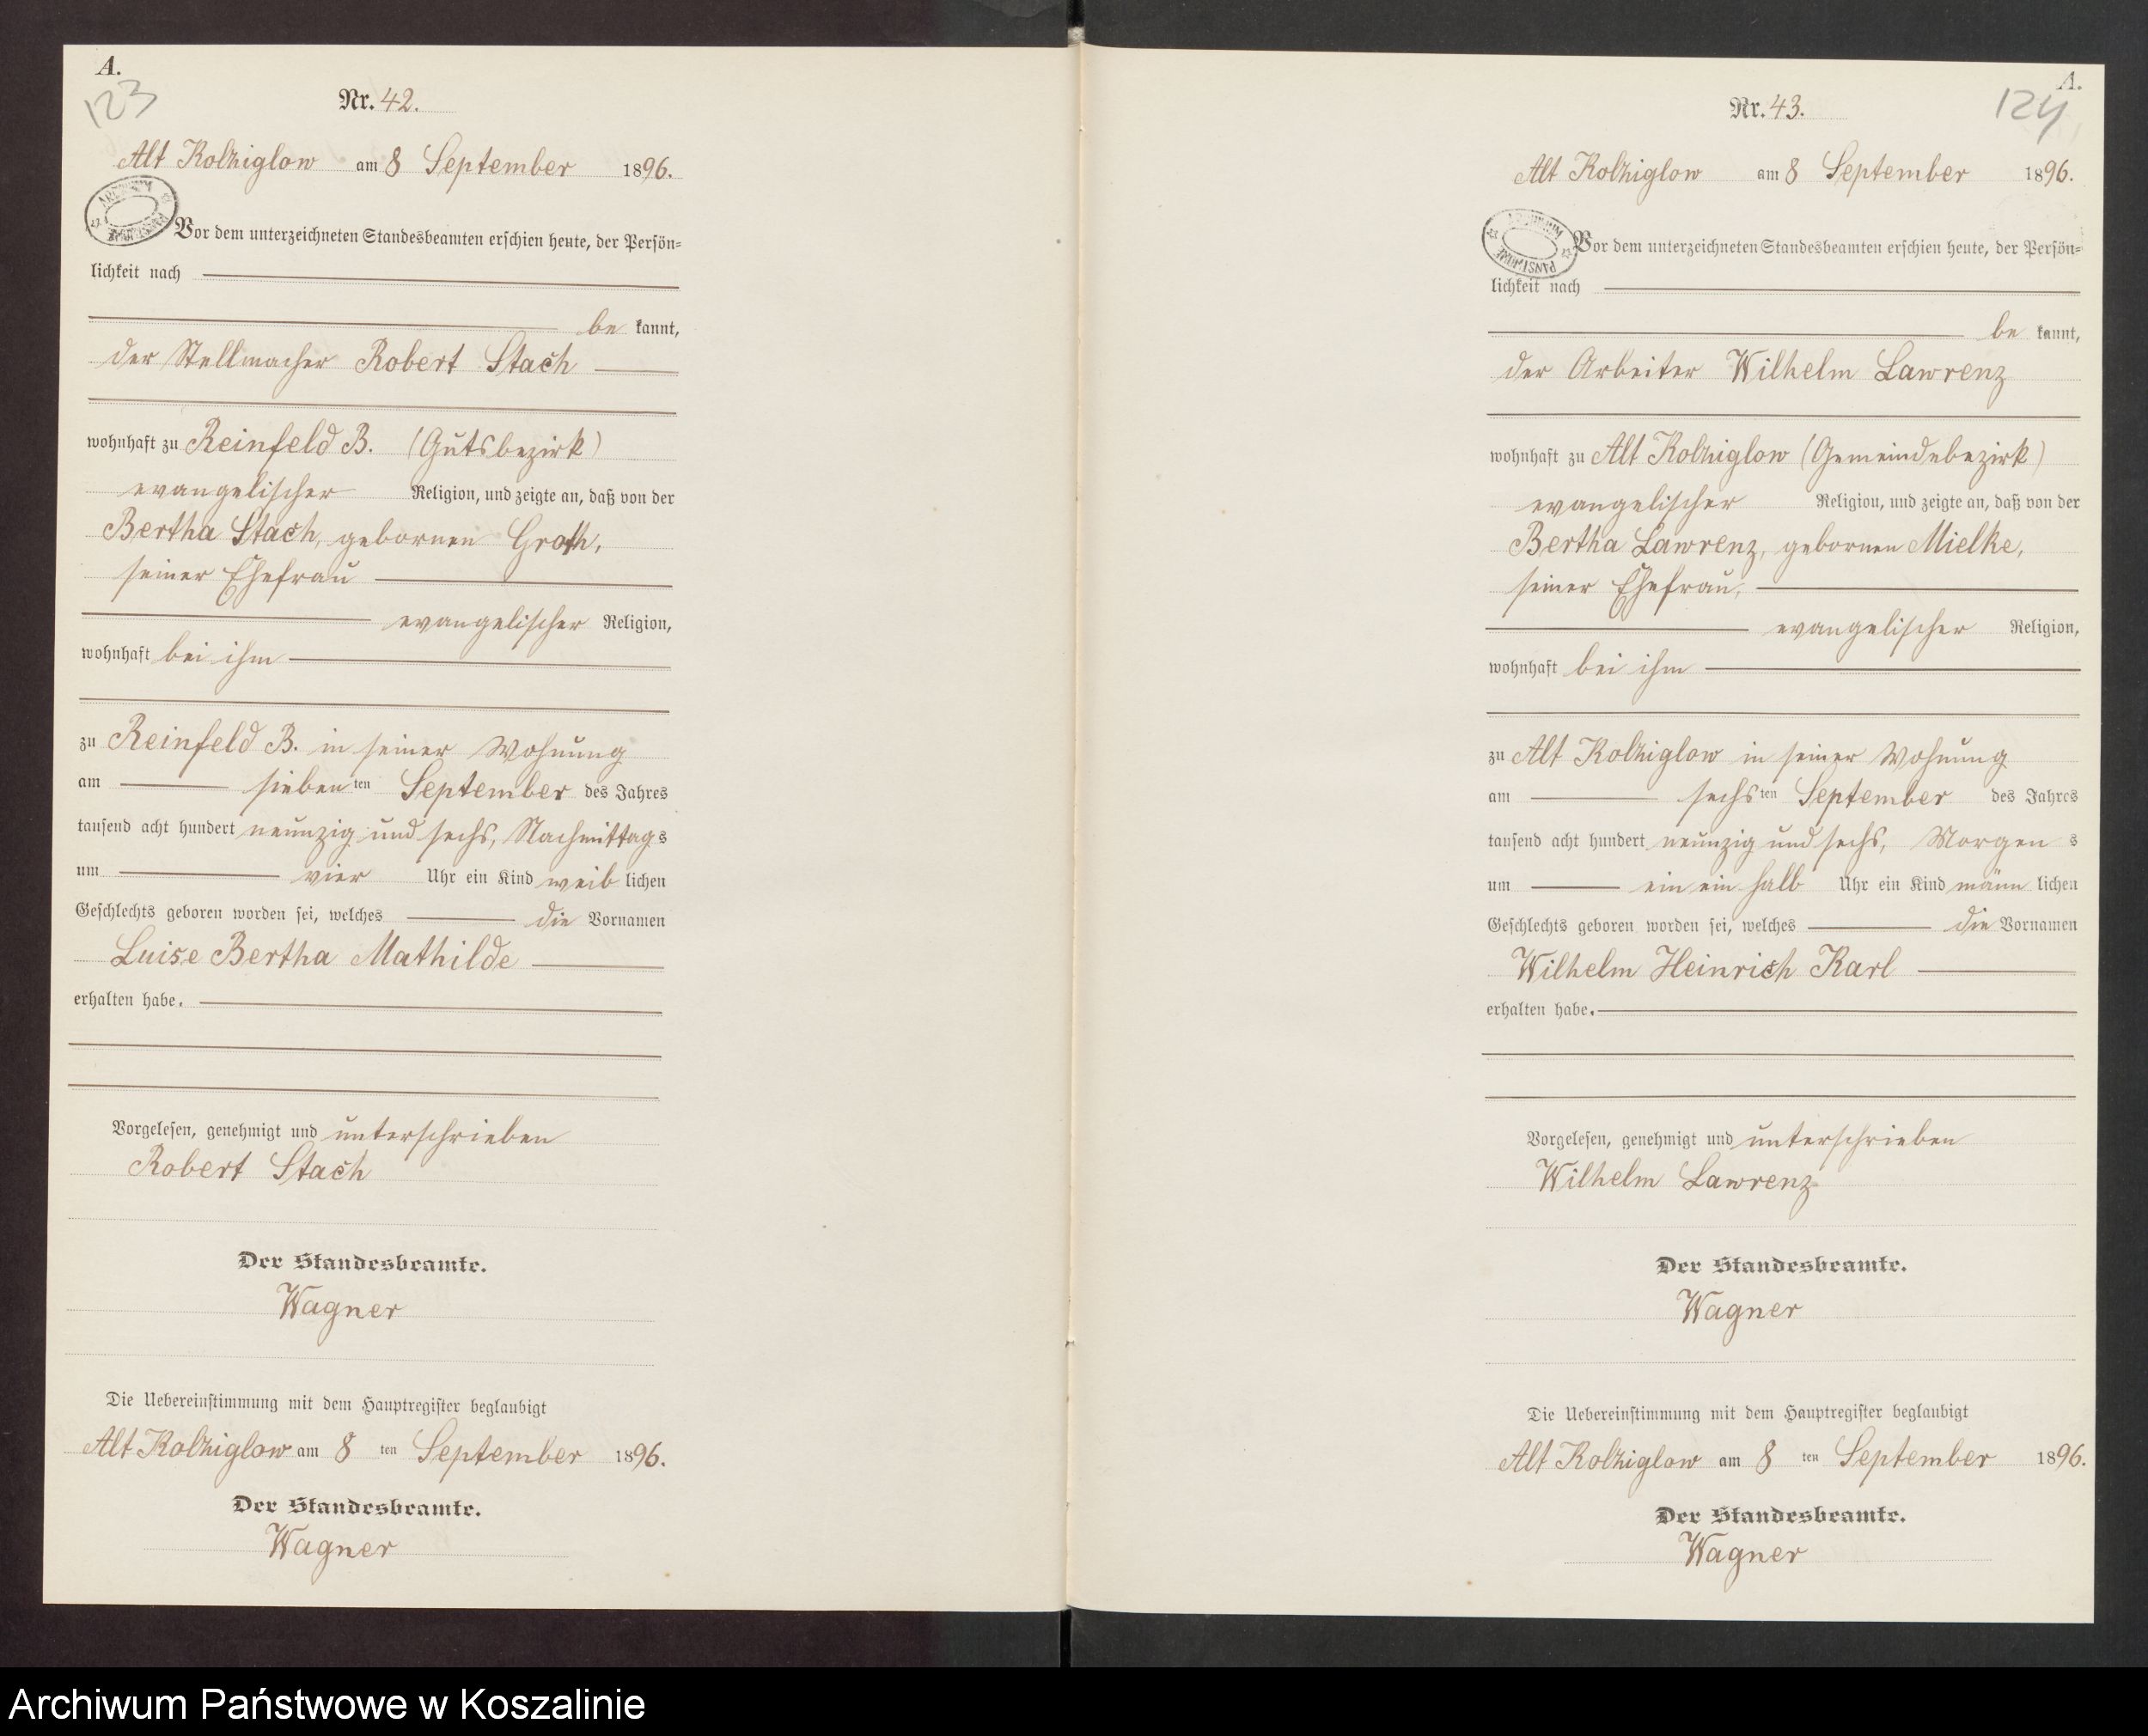 A.
123
Nr. 42.
Alt Kolziglow am 8 September 1896.
ARCHIWUM PAŃSTWOWE
Vor dem unterzeichneten Standesbeamten erschien heute, der Persön-
lichkeit nach
be kannt,
der Stellmacher Robert Stach
wohnhaft zu Reinfeld B. (Gutsbezirk)
evangelischer Religion, und zeigte an, daß von der
Bertha Stach, gebornen Groth,
seiner Ehefrau
evangelischer Religion,
wohnhaft bei ihm
zu Reinfeld B. in seiner Wohnung
am sieben ten September des Jahres
tausend acht hundert neunzig und sechs, Nachmittag s
um vier Uhr ein Kind weib lichen
Geschlechts geboren worden sei, welches die Vornamen
Luise Bertha Mathilde
erhalten habe.
Vorgelesen, genehmigt und unterschrieben
Robert Stach
Der Standesbeamte.
Wagner
Die Uebereinstimmung mit dem Hauptregister beglaubigt
Alt Kolziglow am 8 ten September 1896.
Der Standesbeamte.
Wagner
A.
124
Nr. 43.
Alt Kolziglow am 8 September 1896.
ARCHIWUM PAŃSTWOWE
Vor dem unterzeichneten Standesbeamten erschien heute, der Persön-
lichkeit nach
be kannt,
der Arbeiter Wilhelm Lawrenz
wohnhaft zu Alt Kolziglow (Gemeindebezirk)
evangelischer Religion, und zeigte an, daß von der
Bertha Lawrenz, gebornen Mielke,
seiner Ehefrau,
evangelischer Religion,
wohnhaft bei ihm
zu Alt Kolziglow in seiner Wohnung
am sechs ten September des Jahres
tausend acht hundert neunzig und sechs, Morgen s
um ein ein halb Uhr ein Kind männ lichen
Geschlechts geboren worden sei, welches die Vornamen
Wilhelm Heinrich Karl
erhalten habe.
Vorgelesen, genehmigt und unterschrieben
Wilhelm Lawrenz
Der Standesbeamte.
Wagner
Die Uebereinstimmung mit dem Hauptregister beglaubigt
Alt Kolziglow am 8 ten September 1896.
Der Standesbeamte.
Wagner
Archiwum Państwowe w Koszalinie